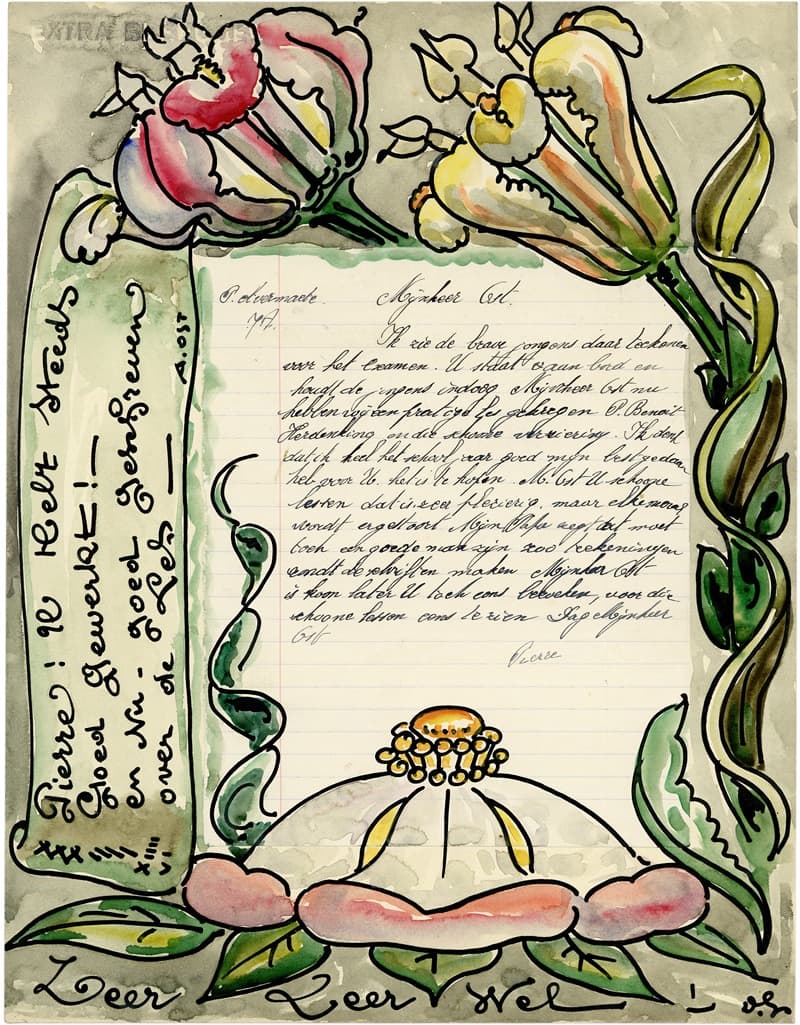 EXTRA
P. Overmaete.
7A.
Mijnheer Ost.
Ik zie de brave jongens daar teekenen
voor het examen. U staat aan bord en
houdt de jongens indoog Mijnheer Ost nu
hebben wij een prachtige les gekregen P. Benoit
Herdenking en die schoone versiering. Ik denk
dat ik heel het schooljaar goed mijn best gedaan
heb voor U. het is te hopen. M. Ost U schoone
lessen dat is zeer plezierig, maar elke
wordt er gestoort Mijn Papa zegt dat moet
toch een goede man zijn zoo teekeningen
rondt de schriften maken Mijnheer Ost
ik hoop later U toch eens bezoeken, voor die
schoone lessen eens te zien Dag Mijnheer
Ost
Pierre
Pierre! U Hebt Steeds
Goed Gewerkt!—
en Nu- goed geschreven
over de Les —
A. OST
XXX IIII
XIIII
VI
Zeer Zeer Wel !